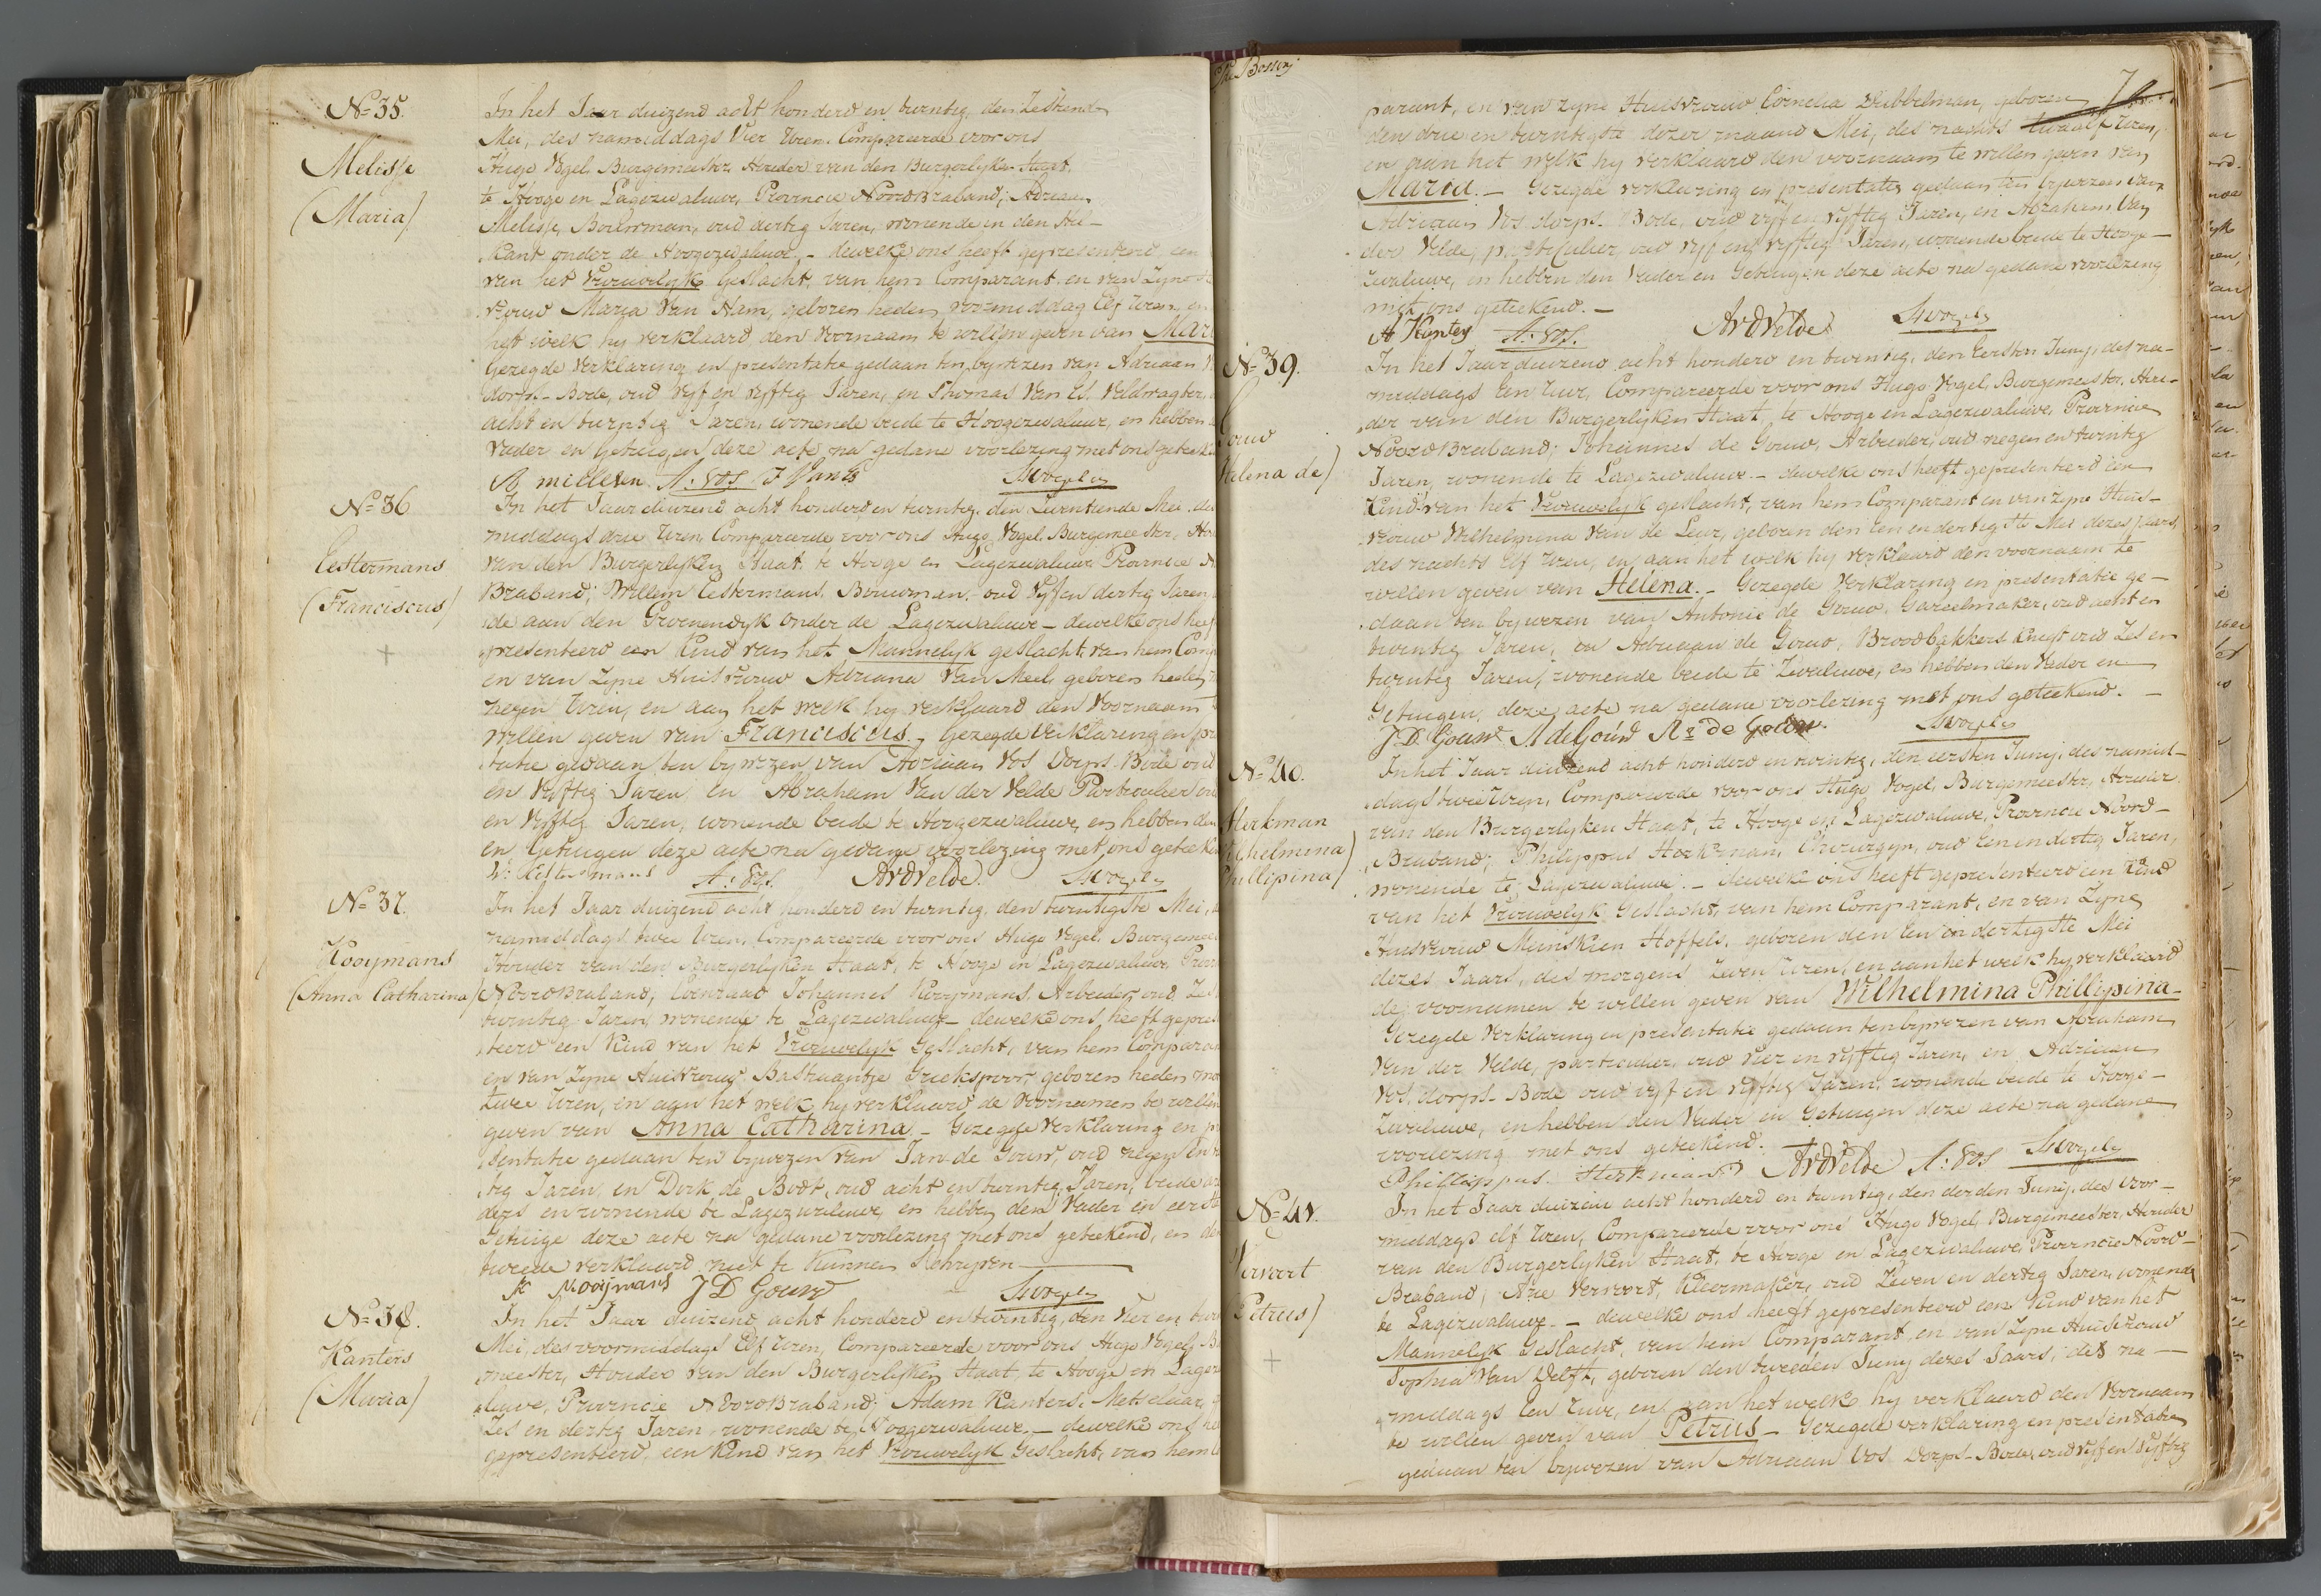 N° 35.
Melisse
(Maria)
In het Jaar duizend acht honderd en twintig, den Zestiende
Mei, des namiddags Vier Uren, Compareerde voor ons
Hugo Vogel Burgemeester, Houder van den Burgerlyken Staat,
te Hooge en Lagezwaluwe, Provincie Noord Braband; Adriaan
Melisse, Bouwman, oud dertig Jaren, wonende in den
Kant onder de Hoogezwaluwe, - dewelke ons heeft gepresenteerd, een
van het Vrouwelyk Geslacht, van hem Comparant en van Zyne
vrouw Maria Van Ham, geboren heden voormiddag Elf Uren, en
het welk hy verklaard, den Voornaam te willen geven van Mar
Gezegde Verklaring en presentatie gedaan ten bywezen van Adriaan V
dorps-Bode, oud vyf en vyftig Jaren, en Thomas Van Es, Veldwagter,
acht en twintig Jaren, wonende beide te Hoogezwaluwe, en hebben
Vader en Getuigen deze acte na gedane voorlezing met ons geteeke
A: Vos. Hvogel
N° 36
Eestermans
(Franciscus)
In het Jaar duizend acht honderd en twintig, den Zeventiende Mei, des
middags drie Uren, Compareerde voor ons Hugo Vogel, Burgemeester, Hou
van den Burgerlyken Staat, te Hooge en Lagezwaluwe Provincie N
Braband; Willem Eestermans, Bouwman, oud Vyf en dertig Jaren,
de aan den Groenendyk onder de Lagezwaluwe - dewelke ons heef
presenteerd een Kind van het Mannelyk geslacht, van hem Comp
en van Zyne Huisvrouw Adriana Van Meel, geboren heden
negen Uren, en aan het welk hy verklaard den Voornaam t
willen geven van Franciscus. - Gezegde Verklaring en pre
tatie gedaan ten bywezen van Adriaan Vos Dorps-Bode oud
en Vyftig Jaren en Abraham Van der Velde Particulier ou
en Vyftig Jaren, wonende beide te Hoogezwaluwe, en hebben den
en Getuigen deze acte na gedane voorlezing met ons geteeken
W: Eestermans A: Vos. AVDVelde. Hvogel
N° 37.
Kooymans
(Anna Catharina)
In het Jaar duizend acht honderd en twintig, den twintigste Mei,
namiddags twee Uren, Compareerde voor ons Hugo Vogel, Burgemee
Houder van den Burgerlyken Staat, te Hooge en Lagezwaluwe, Provi
Noord Braband; Coenraad Johannes Kooymans, Arbeider, oud Zes
twintig Jaren, wonende te Lagezwaluwe - dewelke ons heeft gepres
teerd een Kind van het Vrouwelyk Geslacht, van hem Compara
en van Zyne Huisvrouw Bastiaantje Griekspoor, geboren heden mor
twee Uren, en aan het welk hy verklaard de Voornamen te willen
geven van Anna Catharina. - Gezegde Verklaring en pr
sentatie gedaan ten bywezen van Jan de Gouw, oud negen en
tig Jaren, en Dirk de Bodt, oud acht en twintig Jaren, beide ar
ders en wonende te Lagezwaluwe, en hebben den Vader en eerste
Getuige deze acte na gedane voorlezing met ons geteekend, en de
tweede verklaard niet te Kunnen Schryven
K Kooijmans J D Gouw Hvogel
N° 38.
Kanters
(Maria)
In het Jaar duizend acht honderd en twintig, den Vier en twin
Mei, des voormiddags Elf Uren, Compareerde voor ons Hugo Vogel, Bu
meester, Houder van den Burgerlyken Staat, te Hooge en Lagez
luwe, Provincie Noord Braband; Adam Kanters, Metselaar,
Zes en dertig Jaren, wonende te Hoogezwaluwe, - dewelke ons he
gepresenteerd, een Kind van het Vrouwelyk Geslacht, van hem C
7
parant, en van zyne Huisvrouw Cornelia Dubbelman, geboren
den drie en twintigste dezer maand Mei, des nachts twaalf Uren,
en aan het welk hy verklaard den voornaam te willen geven van
Maria. - Gezegde verklaring en presentatie gedaan ten bywezen van
Adriaan Vos dorps-Bode, oud vyf en vyftig Jaren, en Abraham Van
der Velde, particulier, oud vyf en vyftig Jaren, wonende beide te Hooge-
zwaluwe, en hebben den Vader en Getuigen deze acte na gedane voorlezing
met ons geteekend. -
A Kanters A: Vos. AVDVelde Hvogel
N° 39.
Gouw
Helena de)
In het Jaar duizend acht honderd en twintig, den Eersten Juny, des na-
middags een Uur, Compareerde voor ons Hugo Vogel, Burgemeester, Hou-
der van den Burgerlyken Staat, te Hooge en Lagezwaluwe, Provincie
Noord Braband; Johannes de Gouw, Arbeider, oud negen en twintig
Jaren, wonende te Lagezwaluwe - dewelke ons heeft gepresenteerd een
Kind van het Vrouwelyk geslacht, van hem Comparant en van zyne Huis-
vrouw Wilhelmina Van de Leur, geboren den Een en dertigste Mei dezes Jaars,
des nachts Elf Uren, en aan het welk hy verklaard den voornaam te
willen geven van Helena. - Gezegde Verklaring en presentatie ge-
daan ten bywezen van Antonie de Gouw, Gareelmaker, oud acht en
twintig Jaren, en Adriaan de Gouw, Broodbakkers Knegt oud Zes en
twintig Jaren, wonende beide te Zwaluwe, en hebben den Vader en
Getuigen, deze acte na gedane voorlezing met ons geteekend. -
J D Gouw A de Gouw As de Gouw. Hvogel
N° 40.
Herkman
Wilhelmina)
Phillipina)
In het Jaar duizend acht honderd en twintig, den eersten Juny, des namid-
dags twee Uren, Compareerde voor ons Hugo Vogel, Burgemeester, Houder
van den Burgerlyken Staat, te Hooge en Lagezwaluwe, Provincie Noord-
Braband; Philippus Herkman, Chirurgyn, oud Een en dertig Jaren,
wonende te Lagezwaluwe. - dewelke ons heeft gepresenteerd een Kind
van het Vrouwelyk Geslacht, van hem Comparant, en van Zyne
Huisvrouw Meinskien Hoffels, geboren den Een en dertigste Mei
dezes Jaars, des morgens Zeven Uren, en aan het welk hy verklaard
de voornamen te willen geven van Wilhelmina Phillipina -
Gezegde Verklaring en presentatie gedaan ten bywezen van Abraham
Van der Velde, particulier, oud vier en vyftig Jaren, en Adriaan
Vos, dorps-Bode oud vyf en vyftig Jaren, wonende beide te Hooge-
Zwaluwe, en hebben den Vader en Getuigen deze acte na gedane
voorlezing met ons geteekend.
Philippus Herkman AVDVelde A: Vos Hvogel
N° 41.
Vervoort
Petrus)
In het Jaar duizend acht honderd en twintig, den derden Juny, des voor-
middags elf Uren, Compareerde voor ons Hugo Vogel, Burgemeester, Houder
van den Burgerlyken Staat, te Hooge en Lagezwaluwe, Provincie Noord-
Braband; Arie Vervoort, Kleermaker, oud Zeven en dertig Jaren, wonende
te Lagezwaluwe. - dewelke ons heeft gepresenteerd een Kind van het
Mannelyk Geslacht, van hem Comparant, en van Zyne Huisvrouw
Sophia Van Delft, geboren den tweeden Juny dezes Jaars, des na-
middags Een Uur, en aan het welke hy verklaard den Voornaam
te willen geven van Petrus - Gezegde verklaring en presentatie
gedaan ten bywezen van Adriaan Vos Dorps-Bode, oud vyf en vyftig